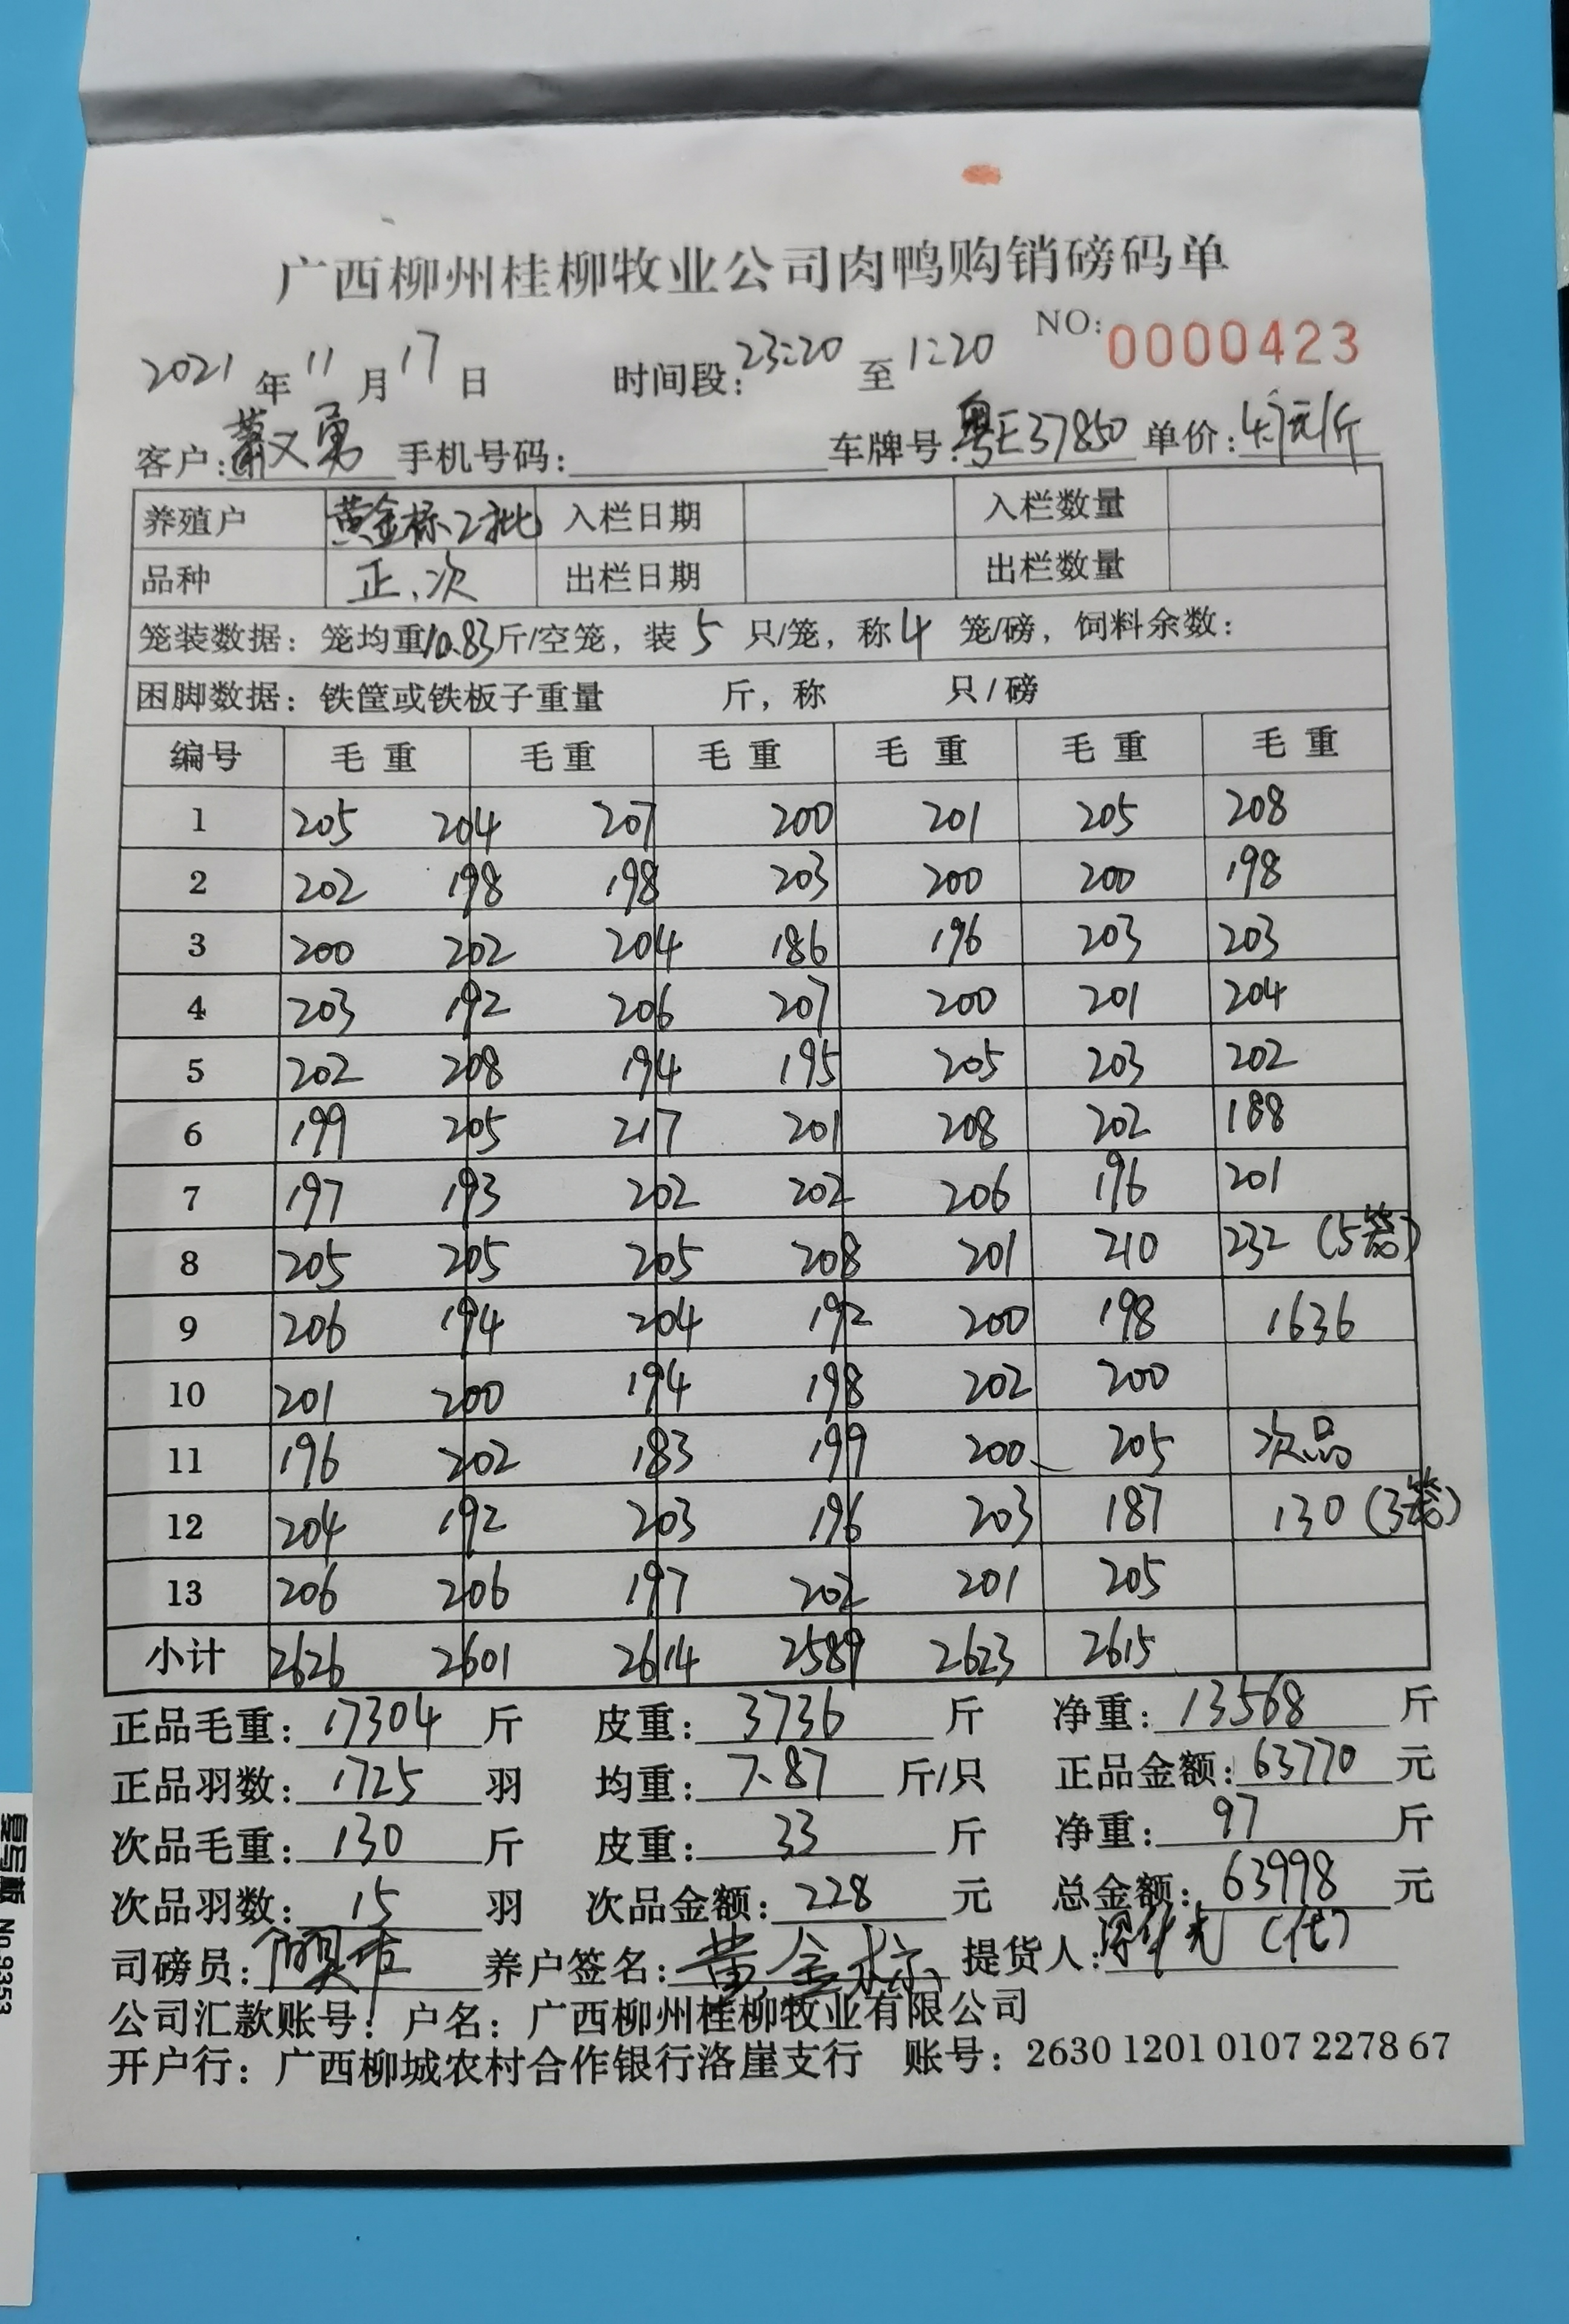 广西柳州桂柳牧业公司肉鸭购销磅码单
NO: 0000423
2021年11月17日 时间段:23:20 至 1:20
客户:萧义勇 手机号码: 车牌号:粤E37850 单价:4.7元/斤
养殖户 黄金标2批 入栏日期 入栏数量
品种 正、次 出栏日期 出栏数量
笼装数据:笼均重10.83斤/空笼,装5只/笼,称4笼/磅,饲料余数:
困脚数据:铁筐或铁板子重量 斤,称 只/磅
编号 毛重 毛重 毛重 毛重 毛重 毛重
1 205 204 207 200 201 205 208
2 202 198 198 203 200 200 198
3 200 202 204 186 196 203 203
4 203 192 206 207 200 201 204
5 202 208 194 195 205 203 202
6 199 205 217 201 208 202 188
7 197 193 202 202 206 196 201
8 205 205 205 208 201 210 232 (5笼)
9 206 194 204 192 200 198 1636
10 201 200 194 198 202 200
11 196 202 183 199 200 205 次品
12 204 192 203 196 203 187 130 (3笼)
13 206 206 197 202 201 205
小计 2626 2601 2614 2589 2623 2615
正品毛重:17304斤 皮重:3736斤 净重:13568斤
正品羽数:1725羽 均重:7.87斤/只 正品金额:63770元
次品毛重:130斤 皮重:33斤 净重:97斤
次品羽数:15羽 次品金额:228元 总金额:63998元
司磅员: 养户签名:黄金标 提货人: (代)
公司汇款账号:户名:广西柳州桂柳牧业有限公司
开户行:广西柳城农村合作银行洛崖支行 账号:2630 1201 0107 2278 67
复写板 No.9353